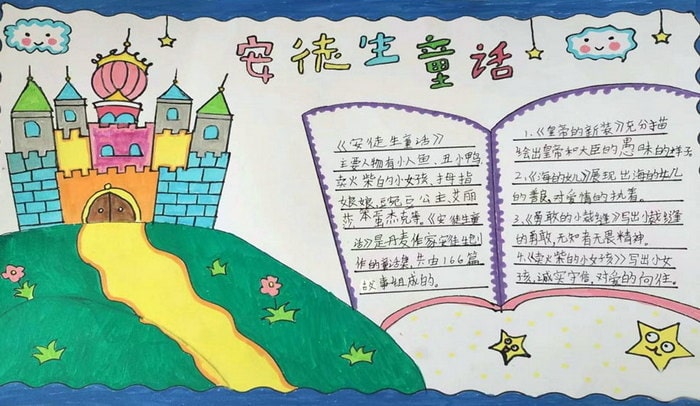 安徒生童话
《安徒生童话》
主要人物有小人鱼、丑小鸭
卖火柴的小女孩、拇指
娘娘、豌豆公主、艾丽
莎、笨蛋杰克等，《安徒生童
话》是丹麦作家安徒生创
作的童话集，共由166篇
故事组成的。
1.《皇帝的新装》充分描
绘出皇帝和大臣的愚昧的样子
2.《海的女儿》展现出海的女儿
的善良，对爱情的执着。
3.《勇敢的小裁缝》写出小裁缝
的勇敢，无知者无畏精神。
4.《卖火柴的小女孩》写出小女
孩，诚实守信，对爱的向往。